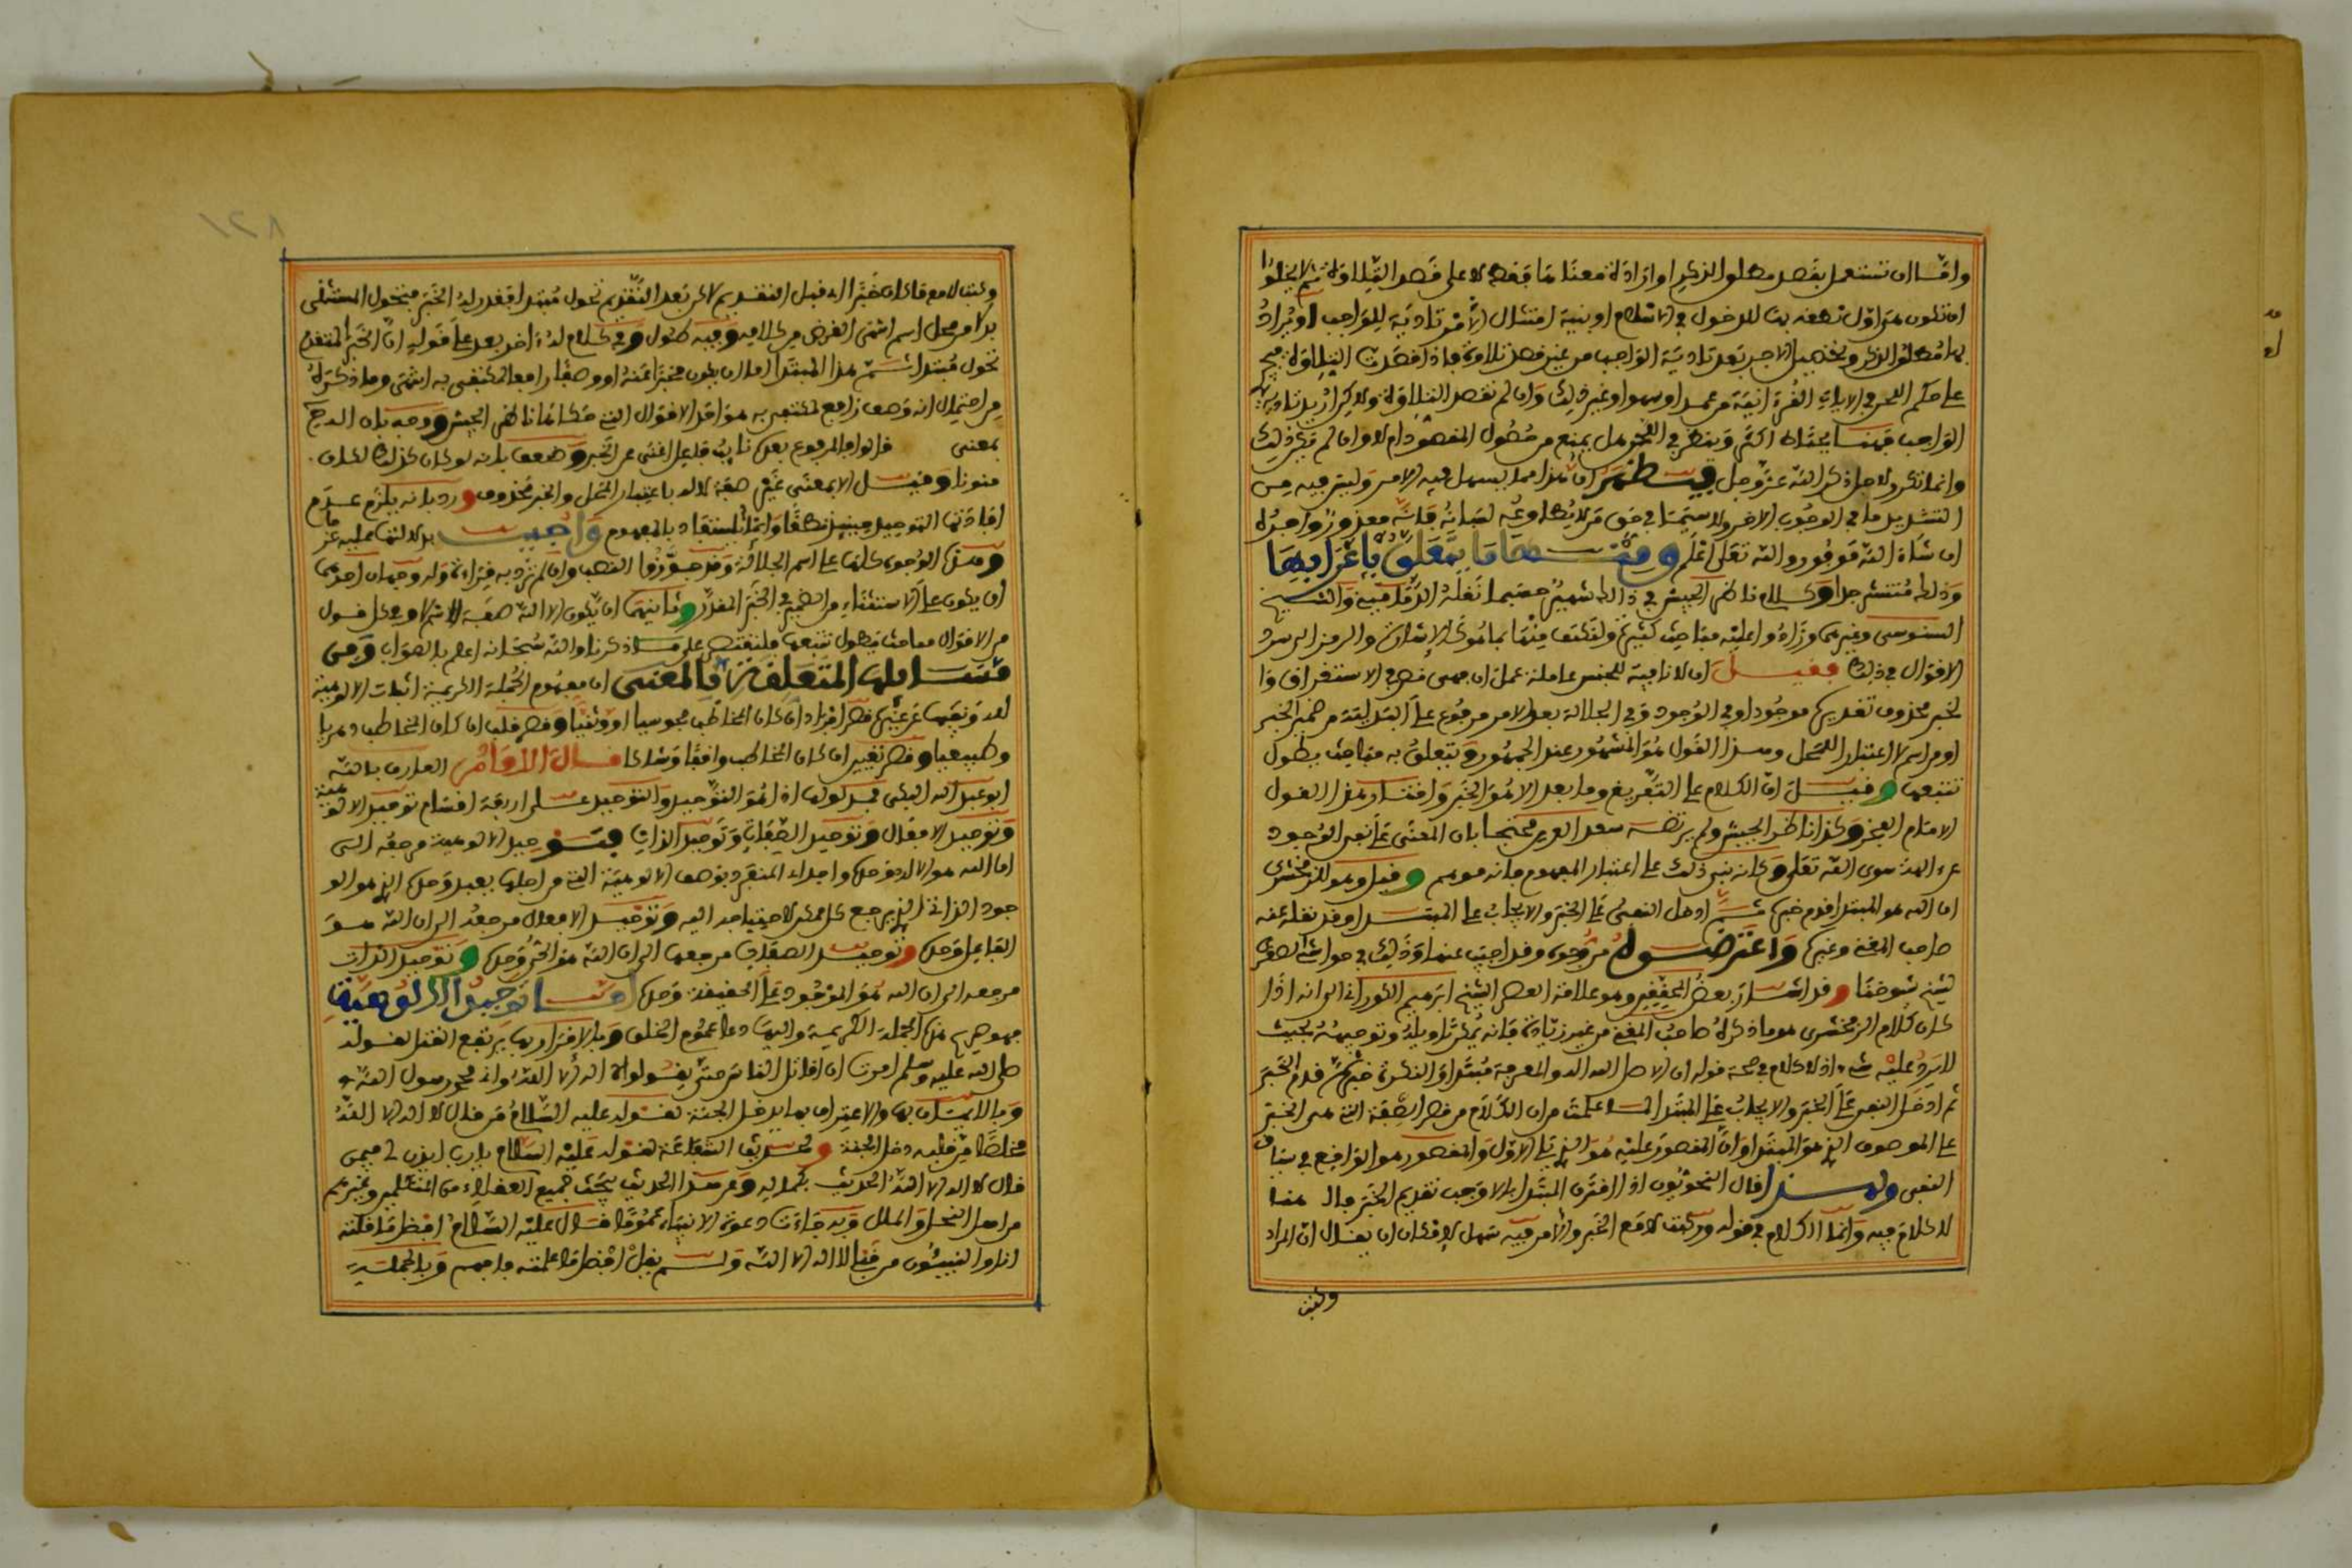 واما ان تستعمل بقصد مطلوا الذكر او ارادة معنا ما فقط لا على قصد التلاوة ثم لا يخلوا
ان تكون من اول نطقه بها للدخول في الاسلام او بنية امتثال الامر تادية للواجب او يراد
بها مطلوا الذكر وتحصيل الاجر بعد تادية الواجب من غير قصد تلاوة فاذا قصدت التلاوة
على حكم اللحن في الايات القرءانية من عمد او سهو او غير ذلك وان لم تقصد التلاوة
الواجب فهنا يحتاط اكثر وينظر في اللحن هل يمنع من حصول المقصود ام لا وان لم يكن ذلك
وانما تذكر لاجل ذكر الله عز وجل فيظهر ان هذا مما يسهل فيه الامر وليس فيه من
التشديد ما في الوجوب الاخر ولا سيما في حق من لا يطاوعه لسانه فانه معذور واجره
ان شاء الله موفور والله تعلى اعلم ومنها ما يتعلق باعرابها
وذلك منتشر جدا وكلام ناظر الجيش في ذلك شهير حسبما نقله الدماميني والشيخ
السنوسي وغيرهما وزادوا عليه مباحث كثيرة ولنكتف منها بما هو كالاشارة والرمز الى سرد
الاقوال في ذلك فقيل ان لا نافية للجنس عاملة عمل ان وهي نص في الاستغراق وا
لخبر محذوف تقديره موجود او في الوجود وفي الجلالة بعد الا مرفوع على البدلية من ضمير الخبر
او من اسم لا اعتبار المحل وهذا القول هو المشهور عند الجمهور وتتعلق به مباحث يطول
تتبعها وقيل ان الكلام على التفريغ وما بعد الا هو الخبر واختار هذا القول
الامام الفخر وكذا ناظر الجيش ولم يرتضه سعد الدين محتجا بان المعنى على نفي الوجود
عن ءالهة سوى الله تعلى وكانه بنى ذلك على اعتبار المفهوم فانه موهم وقيل وهو للزمخشري
ان الله هو المبتدا قدم خبره ثم ادخل النفي على الخبر والايجاب على المبتدا وقد نقله عنه
صاحب المغني وغيره واعترضوه من وجوه وقد اجيب عنها وذلك في حواشي الصغرى
لشيخ شيوخنا وقد اشار بعض المحققين وهو علامة العصر الشيخ ابراهيم الكوراني الى انه اذا
كان كلام الزمخشري هو ما ذكره صاحب المغني من غير زيادة فانه يمكن تاويله وتوجيهه بحيث
لا يرد عليه شيء اذ لا كلام في صحة قوله ان الاصل الله اله والمعرفة مبتدا والنكرة خبره ثم قدم الخبر
ثم ادخل النفي على الخبر والايجاب على المبتدا لما علمت من ان الكلام من قصر الصفة التي هي الخبر
على الموصوف الذي هو المبتدا وان المقصور عليه هو الذي يلي الا ولو المقصور هو الواقع في سياق
النفي ولهذا قال النحويون اذا اقترن المبتدا بالا وجب تقديم الخبر قال هنا
لا كلام فيه وانما الكلام في قوله وركبت لا مع الخبر والامر فيه سهل لامكان ان يقال ان المراد
وركبت
١٢٨
وركبت لا مع ما كان خبرا اله قبل التقديم لاكن بعد التقديم تحول مبتدا فقدر له الخبر فتحول المستثنى
بدلا من محل اسم انتهى الغرض من كلامه وفيه طول وفي كلام له ءاخر بعد على قوله ان الخبر المتقدم
تحول مبتدا ثم هذا المبتدا اما ان يكون مخبرا عنه او وصفا رافعا لمكتفى به انتهى وما ذكره
من احتمال انه وصف رافع لمكتفى به هو احد الاقوال التي حكاها ناظر الجيش ووجه بان اله
بمعنى قالوا والمرفوع بعده نايب فاعل اغنى عن الخبر وضعف بانه لو كان كذلك لكان
منونا وقيل الا بمعنى غير صفة لاله باعتبار المحل والخبر محذوف ورد بانه يلزم عدم
افادتها التوحيد حينيذ نطقا وانما يستفاد بالمفهوم واجيب بدلالتها عليه
وهذه الوجوه كلها على اسم الجلالة وقد جوزوا النصب وان لم ترد به قراءة وله وجهان احدهما
ان يكون على الاستثناء من الضمير في الخبر المقدر وثانيهما ان يكون الا الله صفة لاسم لا وعلى كل قول
من الاقوال مباحث يطول تتبعها فلنقتصر على ما ذكرنا والله سبحانه اعلم بالصواب ومن
مسايلها المتعلقة بالمعنى ان مفهوم الجملة الكريمة اثبات الالوهية
لله ونفيها عن غيره قصر افراد ان كان المخاطب مجوسيا او وثنيا وقصر قلب ان كان المخاطب دهريا
وطبيعيا وقصر تعيين ان كان المخاطب واقفا وشاكا قال الامام العارف بالله
ابو عبد الله البكي مدلولها اذا هو التوحيد والتوحيد على اربعة اقسام توحيد الالوهية
وتوحيد الافعال وتوحيد الصفات وتوحيد الذات فتوحيد الالوهية مرجعه الى
ان الله هو الاله وحده واحد اي المنفرد بوصف الالوهية التي من اجلها يعبد وحده الذي هو الو
جود الذاتي الذي يرجع كل ممكن لاحتياجه اليه وتوحيد الافعال مرجعه الى ان الله هو
الفاعل وحده وتوحيد الصفات مرجعها الى ان الله هو الحي وحده وتوحيد الذات
مرجعه الى ان الله هو الموجود على الحقيقة وحده اما توحيد الالوهية
فهو صريح هذه الجملة الكريمة واليها دعا عموم الخلق وبالاقرار بها يرتفع القتل لقوله
صلى الله عليه وسلم امرت ان اقاتل الناس حتى يقولوا لا اله الا الله واني محمد رسول الله
وبالايمان بها والاعتراف بها يدخل الجنة لقوله عليه السلام من قال لا اله الا الله
مخلصا من قلبه دخل الجنة وحديث الشفاعة لقوله عليه السلام يا رب ايذن لي فيمن
قال لا اله الا الله الحديث بكماله ومن هذا الحديث يبحث جميع العقلاء من المتكلمين وغيرهم
من اهل النحل والملل وبه جاءت دعوة الانبياء عموما قال عليه السلام افضل ما قلته
انا والنبيئون من قبلي لا اله الا الله ولم يقل افضل ما علمته فافهم وبالجملة